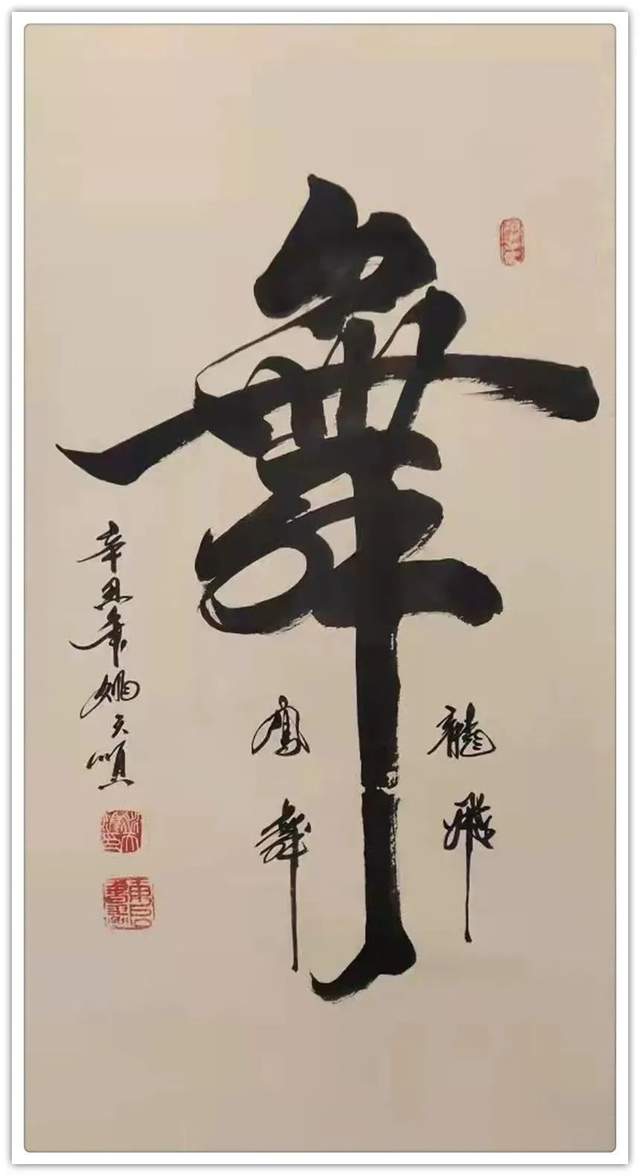 舞
龍飛
鳳舞
辛丑年